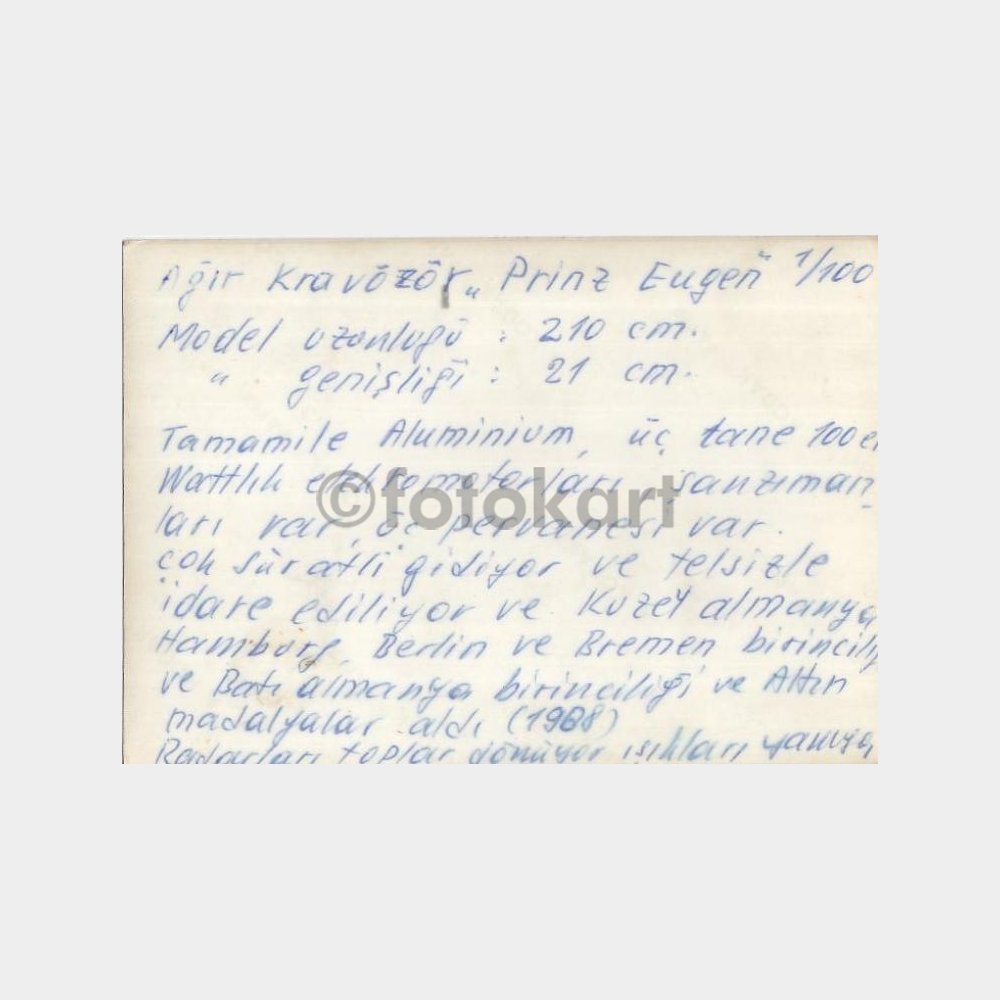 Ağır Kravözör „Prinz Eugen" 1/100
Model uzunluğu : 210 cm.
" genişliği : 21 cm.
Tamamile Aluminium, üç tane 100
Wattlık elektromotorları şanzıman-
ları var, üç pervanesi var.
çok süratli gidiyor ve telsizle
idare ediliyor ve Kuzey almanya
Hamburg, Berlin ve Bremen birincili
ve Batı almanya birinciliği ve Altın
madalyalar aldı (1968)
Radarları toplar dönüyor ışıkları yanıyo
©fotokart